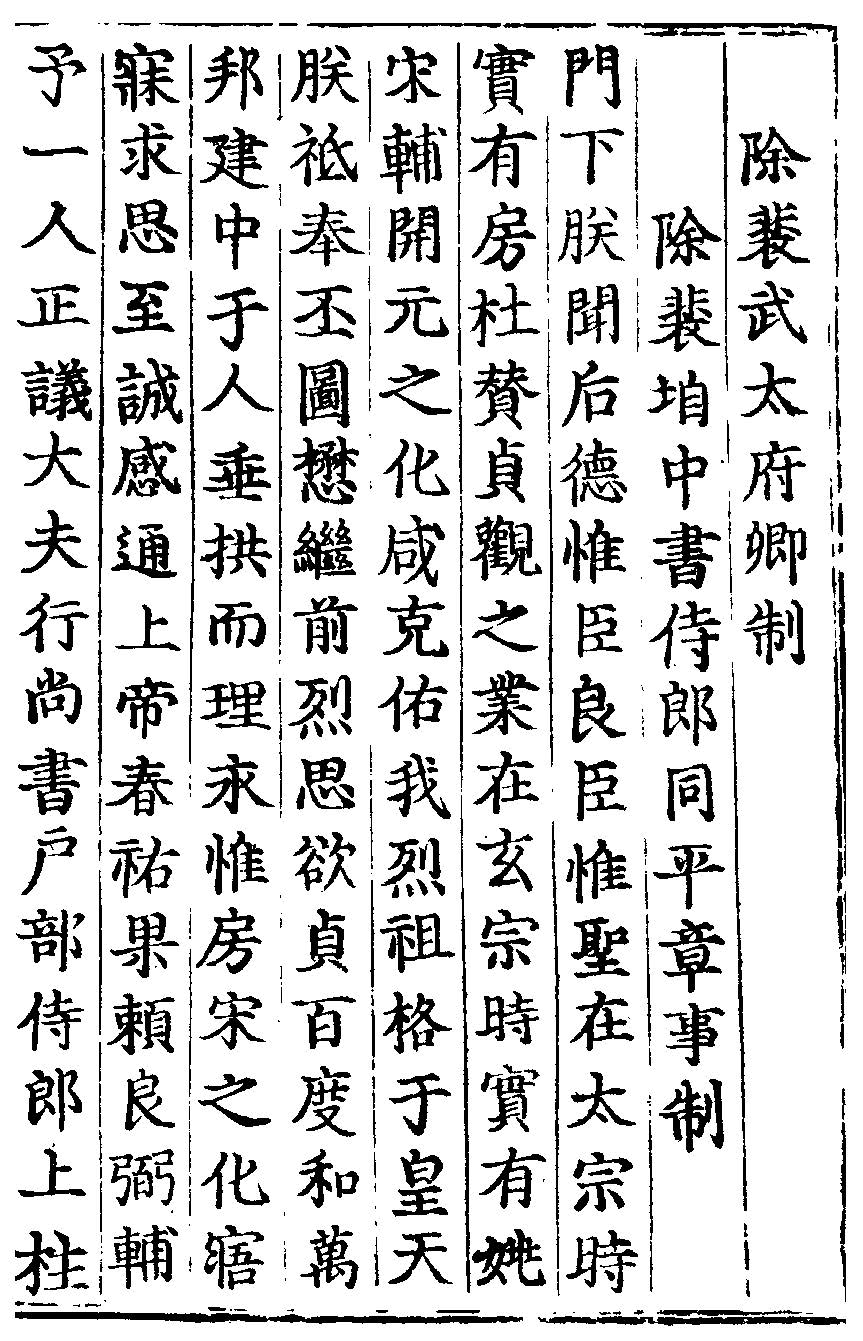 除裴武太府卿制
除裴垍中書侍郎同平章事制
門下朕聞后德惟臣良臣惟聖在太宗時
實有房杜賛貞觀之業在玄宗時實有姚
宋輔開元之化咸克佑我烈祖格于皇天
朕祗奉丕圖懋繼前烈思欲貞百度和萬
邦建中于人垂拱而理永惟房宋之化寤
寐求思至誠感通上帝春祐果頼良弼輔
予一人正議大夫行尚書户部侍郎上柱